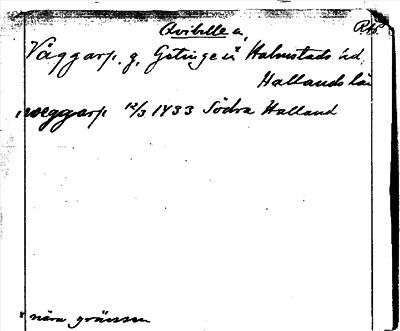 Qvibille a. RAp.
Väggarp. g. Getinge sn x Halmstads hd,
Hallands län
weggarp 12/3 1433 Södra Halland
x nära gränsen